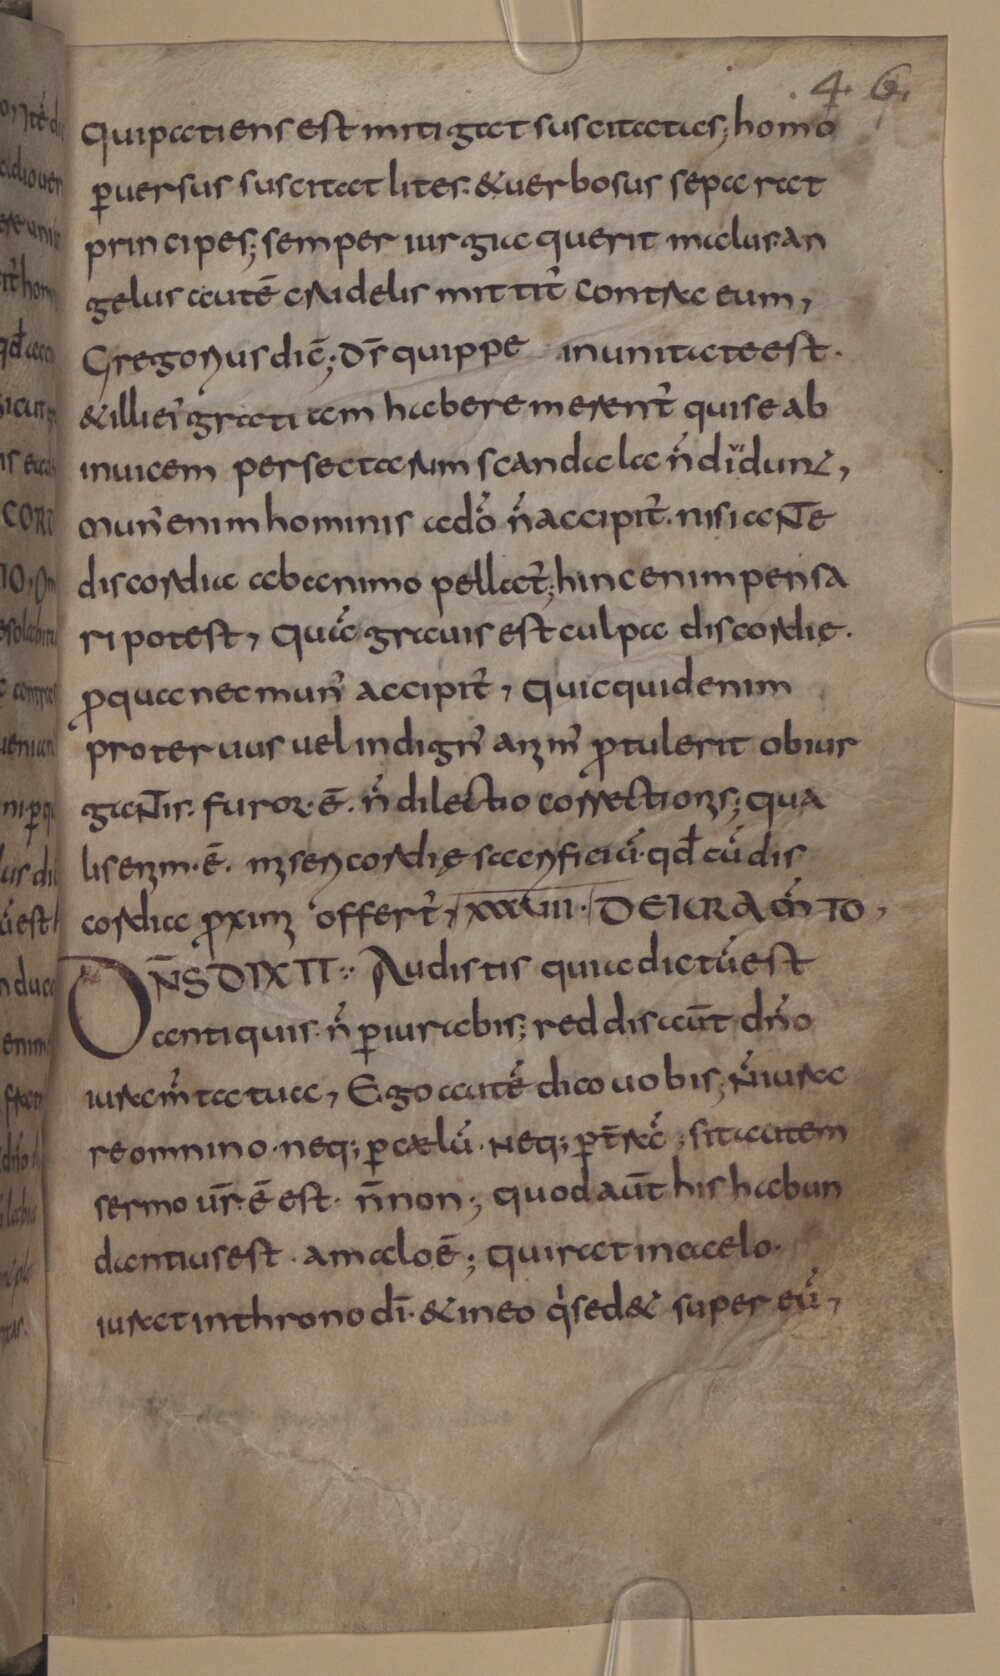 4 6.
qui patiens est mitigat suscitatas; homo
p̱uersus suscitat lites. &uerbosus separat
principes; semper iurgia querit malus. an
gelus autē crudelis mittit̓ contra eum,
Gregorius dic̄; dr̄ quippe in unitate est.
&illi ei̓ gratiam habere merent̓ qui se ab
inuicem persectarum scandala n̓ diuidunt,
Mun̓ enim hominis a dō n̓ accipit̓. nisi ante
discordia ab animo pellat̓; hinc enim pensa
ri potest, quā grauis est culpa discordię.
p̱qua nec mun̓ accipit̓, Quicquid enim
proteruus uel indign̓ anim̓ p̱tulerit obiur
gantis. furor. ē. n̓ dilectio correctionis; qua
lis enim. ē. misericordię sacrificiū. qd̄ cū dis
cordia p̱ximi offert̓, xxxiii. DE IURAM̄TO,
DN̄S DIXIT: Audistis quia dictū est
antiquis. n̓ p̱iurabis; reddis aūt dn̄o
iuram̄ta tua, Ego autē dico uobis; n̓ iura
re omnino. neq; p̱ cælū. neq; p̱ t̄rā; sit autem
sermo ur̄. ē est. n̄ non; quod aūt his habun
dantius est. a malo ē; qui iurat in caelo.
iurat in throno dī. & in eo q̓ sed& super eū,